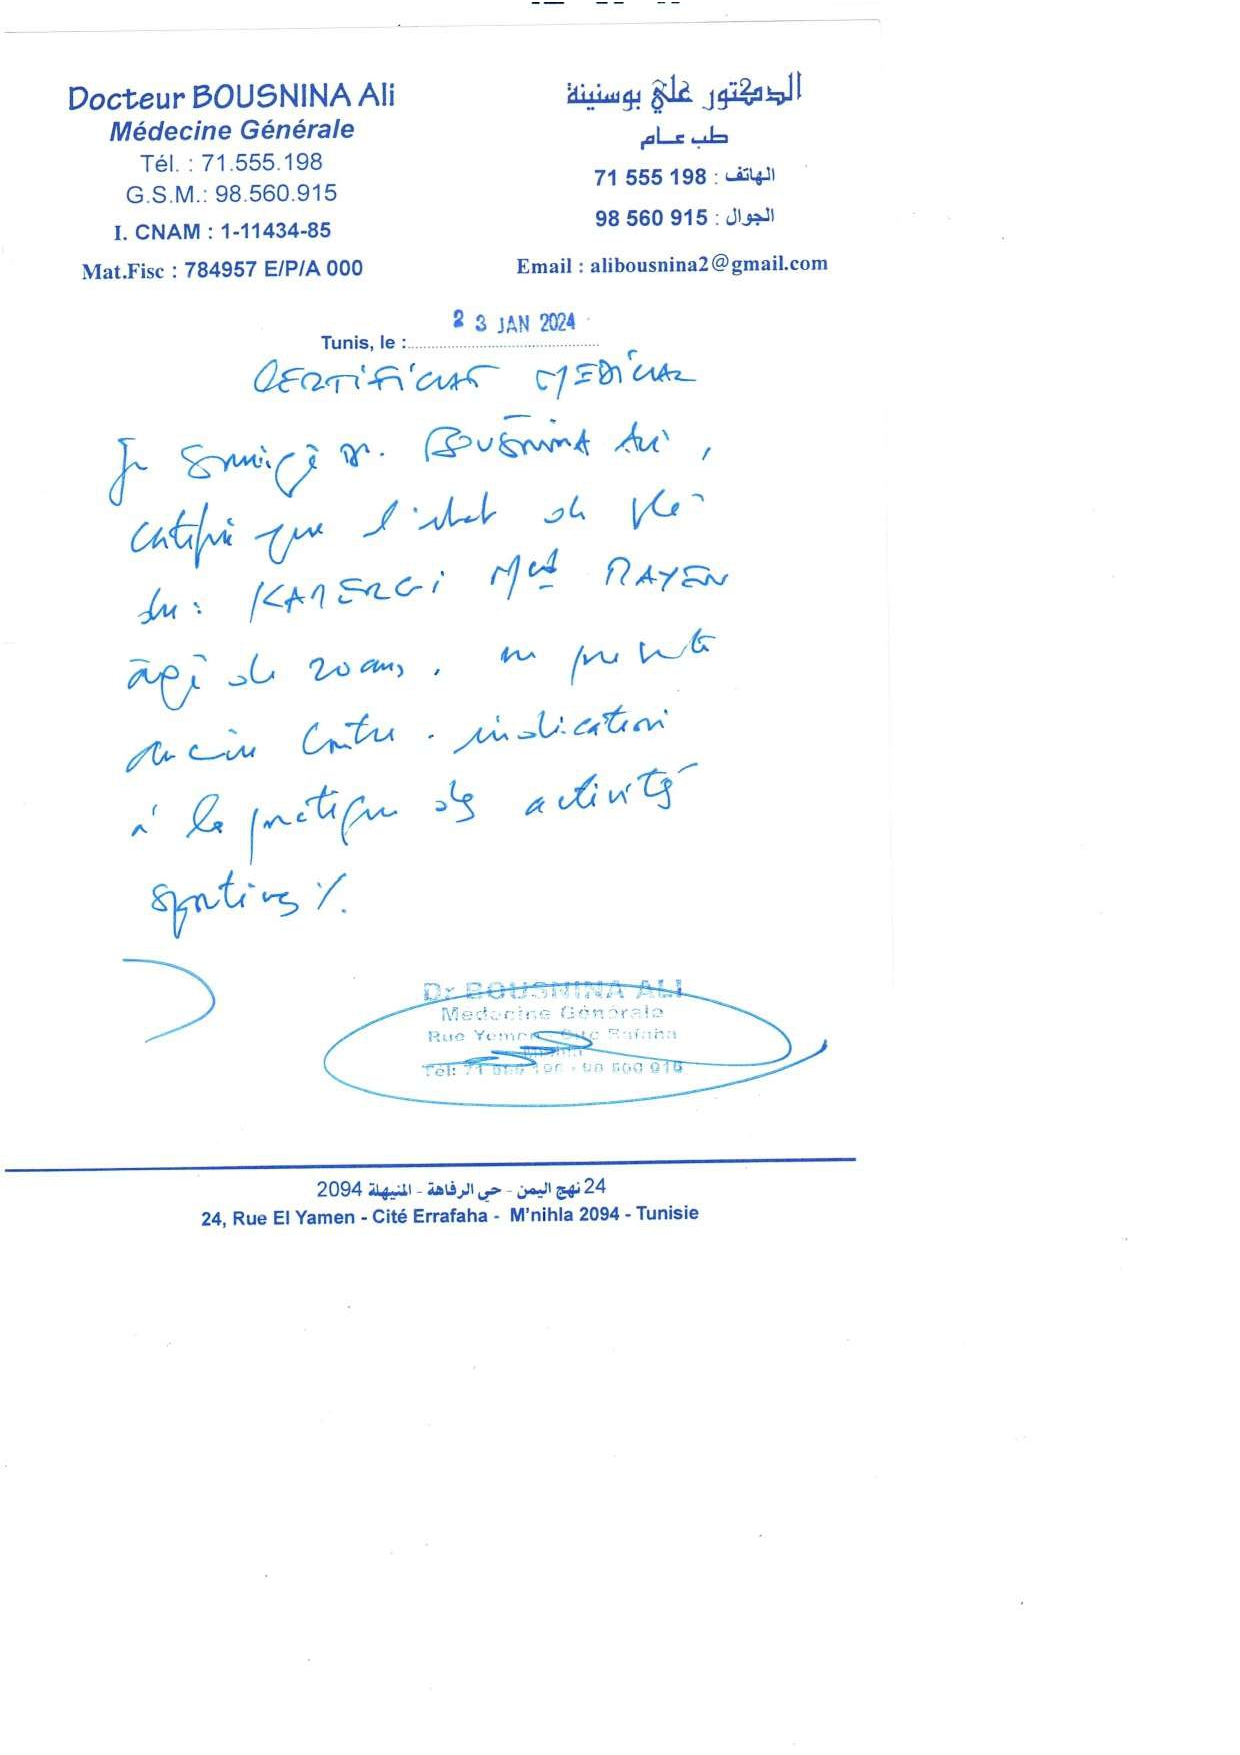 Docteur BOUSNINA Ali
Médecine Générale
Tél. : 71.555.198
G.S.M.: 98.560.915
I. CNAM : 1-11434-85
Mat.Fisc : 784957 E/P/A 000
الدكتور علي بوسنينة
طب عام
الهاتف : 71 555 198
الجوال : 98 560 915
Email : alibousnina2@gmail.com
23 JAN 2024
Tunis, le :
CERTIFICAT MEDICAL
Je soussigné Dr. BOUSNINA Ali,
certifie que l'état de
du : KAMERGI Med RAYEN
âgé de 20 ans, ne présente
aucune contre-indication
à la pratique des activités
sportives %.
Dr BOUSNINA ALI
Medecine Générale
Rue Yemen - Cité Rafaha
Tél: 71
24 نهج اليمن - حي الرفاهة - المنيهلة 2094
24, Rue El Yamen - Cité Errafaha - M'nihla 2094 - Tunisie